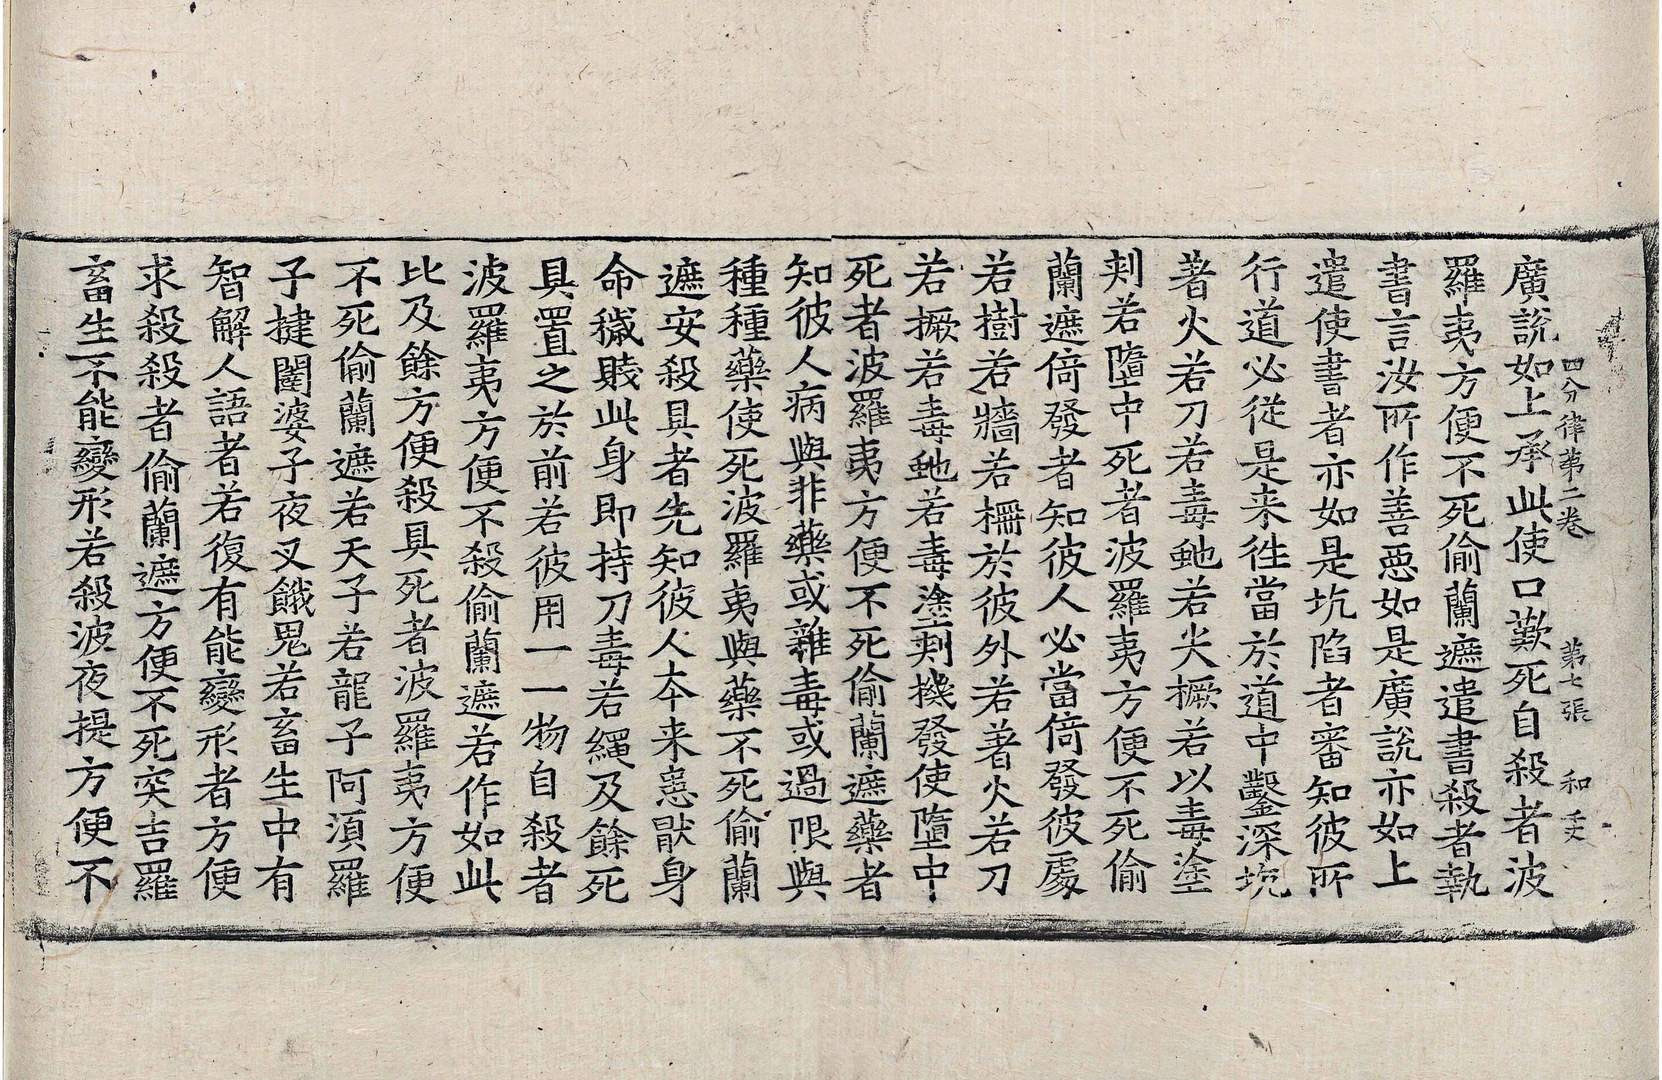 四分律第二卷　第七張　和
廣說如上承此使口歎死自殺者波
羅夷方便不死偷蘭遮遣書殺者執
書言汝所作善惡如是廣說亦如上
遣使書者亦如是坑陷者審知彼所
行道必從是来徃當於道中鑿深坑
著火若刀若毒虵若尖橛若以毒塗
刾若墮中死者波羅夷方便不死偷
蘭遮倚發者知彼人必當倚發彼處
若樹若牆若柵於彼外若著火若刀
若橛若毒虵若毒塗刾機發使墮中
死者波羅夷方便不死偷蘭遮藥者
知彼人病與非藥或雜毒或過限與
種種藥使死波羅夷與藥不死偷蘭
遮安殺具者先知彼人夲来患猒身
命穢賤此身即持刀毒若繩及餘死
具置之於前若彼用一一物自殺者
波羅夷方便不殺偷蘭遮若作如此
比及餘方便殺具死者波羅夷方便
不死偷蘭遮若天子若龍子阿湏羅
子揵闥婆子夜叉餓鬼若畜生中有
智解人語者若復有能變形者方便
求殺殺者偷蘭遮方便不死突吉羅
畜生不能變形若殺波夜提方便不